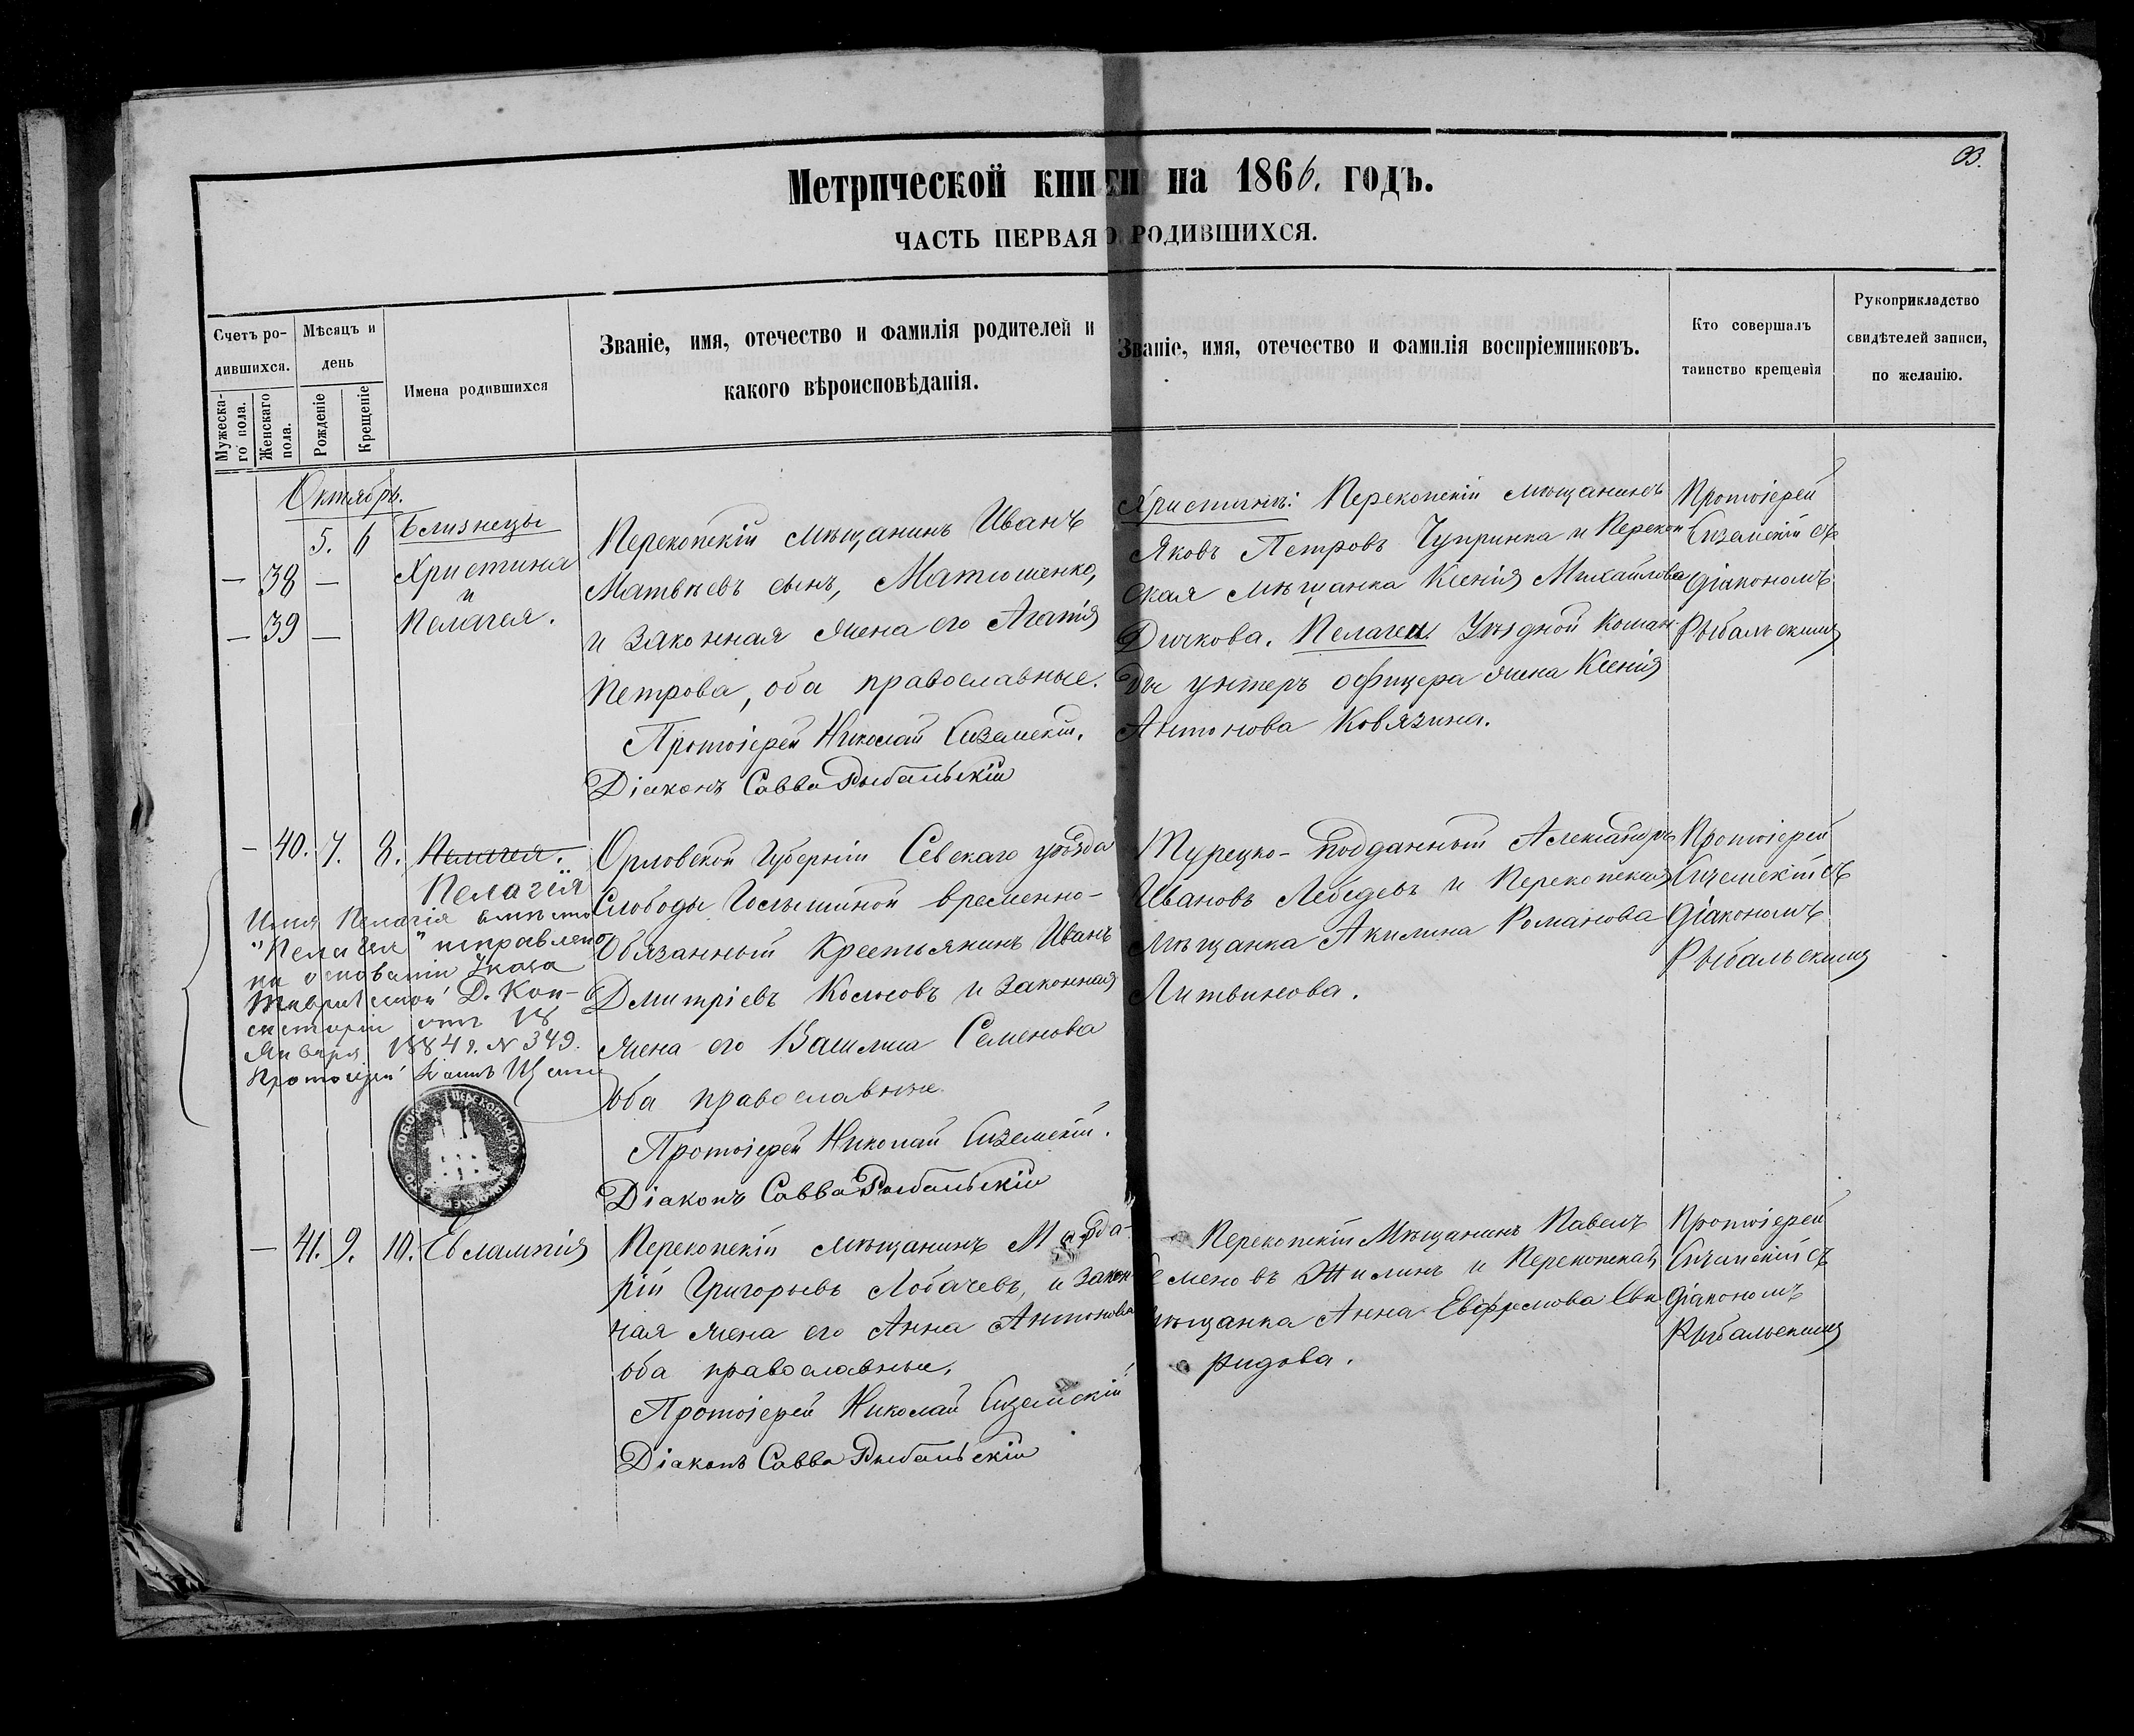 93.
Метрической книги на 1866. годъ.
ЧАСТЬ ПЕРВАЯ О РОДИВШИХСЯ.
Счетъ ро-
дившихся.
Мужеска-
го пола.
Женскаго
пола.
Мѣсяцъ и
день
Рожденіе
Крещеніе
Имена родившихся
Званіе, имя, отечество и фамилія родителей и
какого вѣроисповѣданія.
Званіе, имя, отечество и фамилія воспріемниковъ.
Кто совершалъ
таинство крещенія
Рукоприкладство
свидѣтелей записи,
по желанію.
Октябрь.
5. 6 Близнецы
— 38 — Христина
и
— 39 — Пелагея.
Перекопскій мѣщанинъ Иванъ
Матвѣевъ сынъ, Матюшенко,
и законная жена его Агапія
Петрова, оба православные.
Протоіерей Николай Сиземскій.
Діаконъ Савва Рыбальскій
Христины: Перекопскій мѣщанинъ
Яковъ Петровъ Чупринка и Перекоп
ская мѣщанка Ксенія Михайлова
Дичкова. Пелагеи Уѣздной Коман
ды унтеръ офицера жена Ксенія
Антонова Ковязина.
Протоіерей
Сиземскій съ
діакономъ
Рыбальскимъ
— 40. 7. 8. Пелагея.
Пелагія
Имя Пелагія вмѣсто
"Пелагея" исправлено
на основаніи Указа
Таврической Д. Кон-
систоріи отъ 18
Января 1884 г. № 349.
Протоіерей
Орловской Губерніи Севскаго уѣзда
Слободы временно-
Обязанный Крестьянинъ Иванъ
Дмитріевъ Колосовъ и Законная
жена его Василиса Семенова
оба православные
Протоіерей Николай Сиземскій.
Діаконъ Савва Рыбальскій
Турецко-подданный Александръ
Ивановъ Лебедевъ и Перекопская
мѣщанка Акилина Романова
Литвинова.
Протоіерей
Сиземскій съ
діакономъ
Рыбальскимъ
— 41. 9. 10. Евлампія
Перекопскій мѣщанинъ Марда-
рій Григорьевъ Лобачевъ, и закон
ная жена его Анна Антонова
оба православные,
Протоіерей Николай Сиземскій
Діаконъ Савва Рыбальскій
Перекопскій Мѣщанинъ Павелъ
Семеновъ Жилинъ и Перекопская
мѣщанка Анна Евфремова Сви
ридова.
Протоіерей
Сиземскій съ
діакономъ
Рыбальскимъ